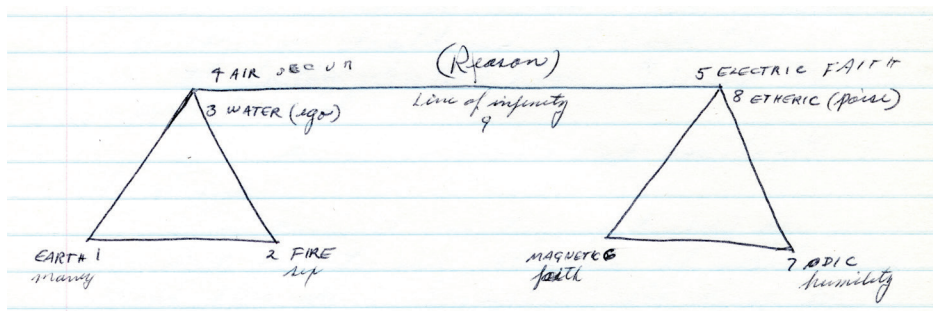 4 AIR SECUR
(Reason)
5 ELECTRIC FAITH
3 WATER (ego)
Line of infinity
9
8 ETHERIC (poise)
EARTH 1
money
2 FIRE
sex
MAGNETIC 6
faith
7 ODIC
humility